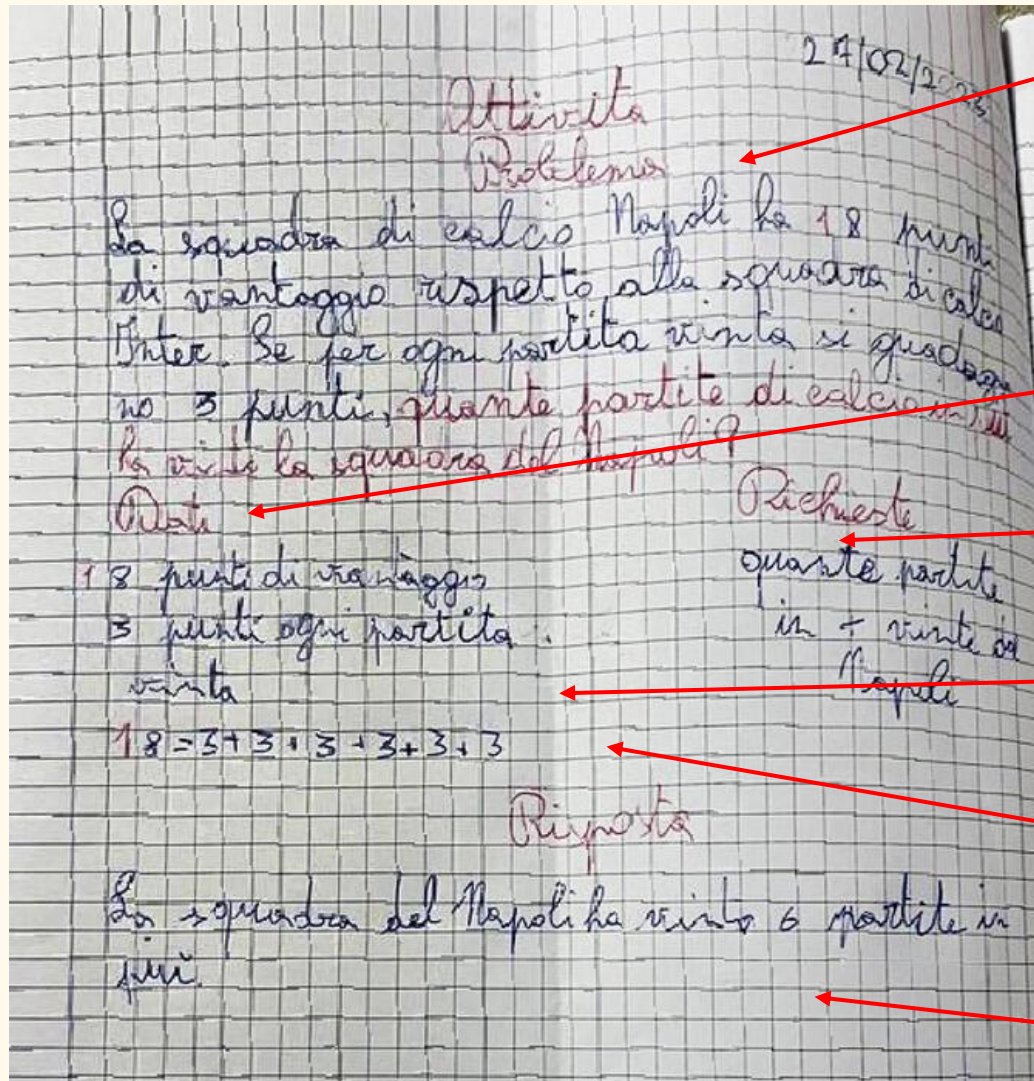 27/02/2023
Attività
Problema
La squadra di calcio Napoli ha 18 punti
di vantaggio rispetto alla squadra di calcio
Inter. Se per ogni partita vinta si guadag
no 3 punti, quante partite di calcio in più
ha vinto la squadra del Napoli?
Dati
Richieste
18 punti di vantaggio
quante partite
3 punti ogni partita
in + vinte da
vinta
Napoli
18=3+3+3+3+3+3
Risposta
La squadra del Napoli ha vinto 6 partite in
più.